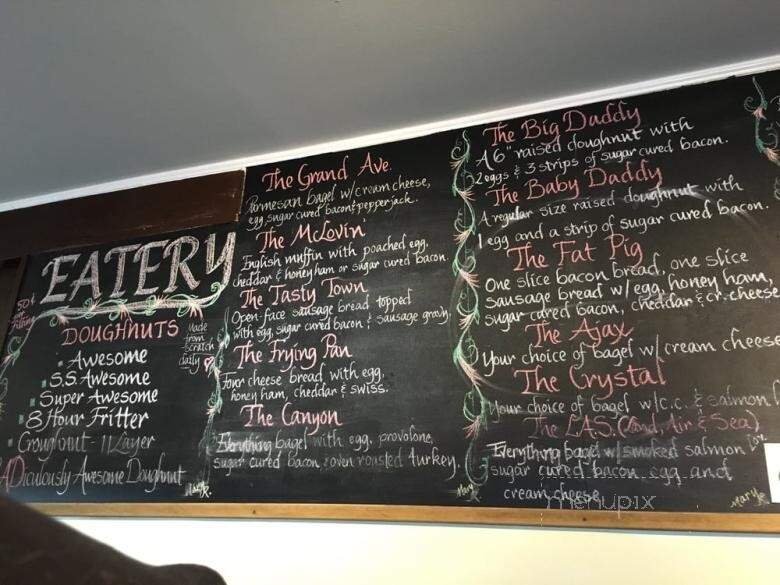 EATERY
50¢
per
filling
DOUGHNUTS
Made
from
scratch
daily
Awesome
S.S. Awesome
Super Awesome
8 Hour Fritter
Croughnut - 11 Layer
ADiculously Awesome Doughnut
The Grand Ave.
Parmesan bagel w/cream cheese,
egg, sugar cured bacon & pepperjack.
The McLovin
English muffin with poached egg,
cheddar & honey ham or sugar cured bacon.
The Tasty Town
Open-face sausage bread topped
with egg, sugar cured bacon & sausage gravy.
The Frying Pan
Four cheese bread with egg,
honey ham, cheddar & swiss.
The Canyon
Everything bagel with egg, provolone,
sugar cured bacon & oven roasted turkey.
Mary
The Big Daddy
A 6" raised doughnut with
2 eggs & 3 strips of sugar cured bacon.
The Baby Daddy
A regular size raised doughnut with
1 egg and a strip of sugar cured bacon.
The Fat Pig
One slice bacon bread, one slice
sausage bread w/egg, honey ham,
sugar cured bacon, cheddar & cr. cheese
The Ajax
Your choice of bagel w/cream cheese
The Crystal
Your choice of bagel w/c.c. & salmon
The L.A.S. (Land, Air & Sea)
Everything bagel w/smoked salmon
sugar cured bacon, egg and
cream cheese
Mary
menupix